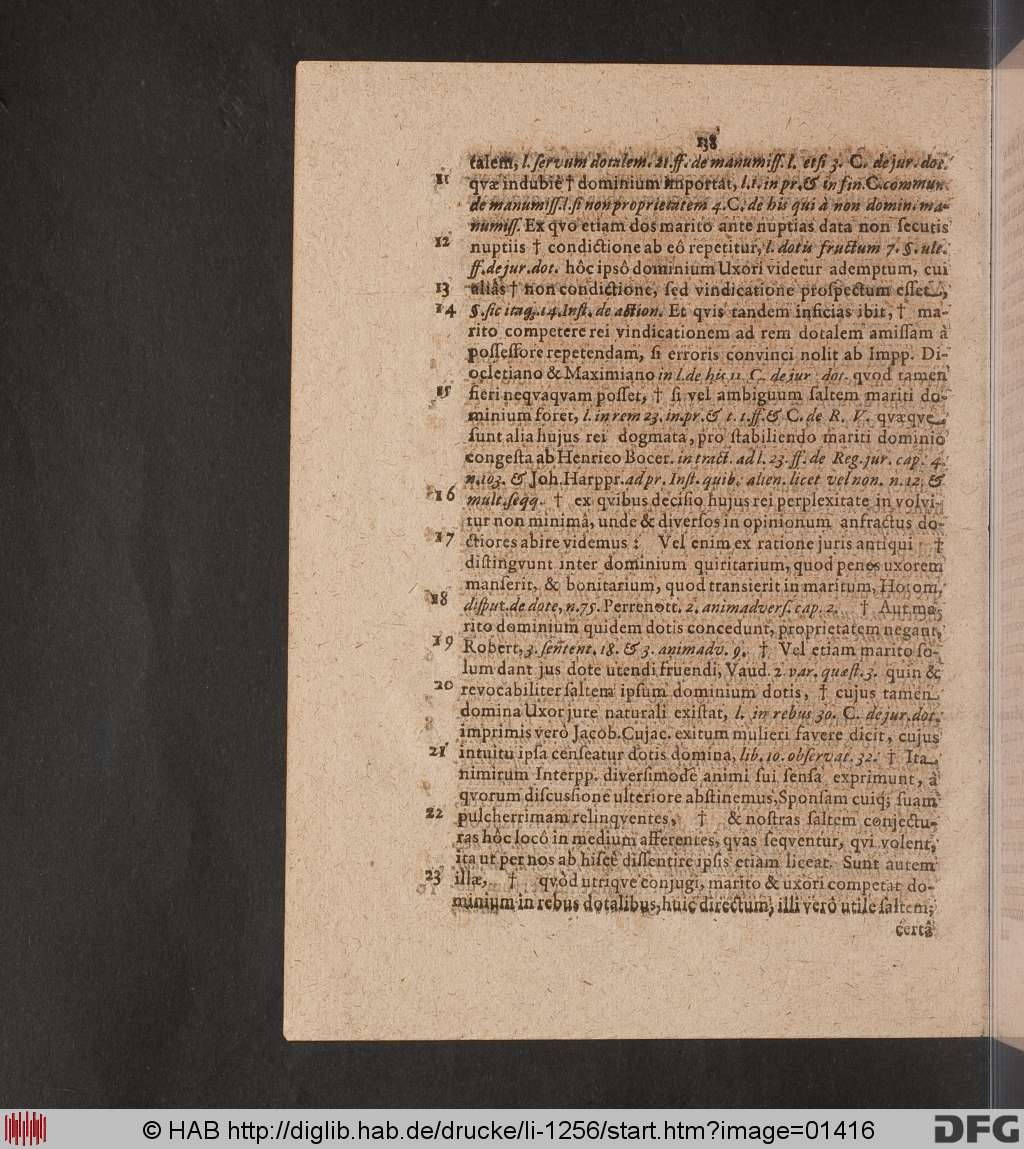 138
talem, l. servum dotalem. 21. ff. de manumiss. l. etsi 3. C. de jur. dot.
11 qvæ indubiè † dominium importat, l. 1. in pr. & in fin. C. commun.
de manumiss. l. si non proprietatem 4. C. de his qui à non domin. ma-
numiss. Ex qvo etiam dos marito ante nuptias data non secutis
12 nuptiis † condictione ab eô repetitur, l. dotis fructum 7. §. ult.
ff. de jur. dot. hôc ipsô dominium Uxori videtur ademptum, cui
13 aliâs † non condictione, sed vindicatione prospectum esset,
14 §. sic itaq; 14. Inst. de action. Et qvis tandem inficias ibit, † ma-
rito competere rei vindicationem ad rem dotalem amissam à
possessore repetendam, si erroris convinci nolit ab Impp. Di-
ocletiano & Maximiano in l. de his 11. C. de jur. dot. qvod tamen
15 fieri neqvaqvam posset, † si vel ambiguum saltem mariti do-
minium foret, l. in rem 23. in pr. & t. 1. ff. & C. de R. V. qvæqve
sunt alia hujus rei dogmata, pro stabiliendo mariti dominio
congesta ab Henrico Bocer. in tract. ad l. 23. ff. de Reg. jur. cap. 4.
n. 103. & Joh. Harppr. ad pr. Inst. quib. alien. licet vel non. n. 12. &
16 mult. seqq. † ex qvibus decisio hujus rei perplexitate in volvi-
tur non minimâ, unde & diversos in opinionum anfractus do-
17 ctiores abire videmus: Vel enim ex ratione juris antiqui †
distingvunt inter dominium quiritarium, quod penes uxorem
manserit, & bonitarium, quod transierit in maritum, Hotom.
18 disput. de dote, n. 75. Perrenott. 2. animadvers. cap. 2. † Aut ma-
rito dominium quidem dotis concedunt, proprietatem negant,
19 Robert, 3. sentent. 18. & 3. animadv. 9. † Vel etiam marito so-
lum dant jus dote utendi fruendi, Vaud. 2 var. quæst. 3. quin &
20 revocabiliter saltem ipsum dominium dotis, † cujus tamen
domina Uxor jure naturali existat, l. in rebus 30. C. de jur. dot.
imprimis verò Jacob. Cujac. exitum mulieri favere dicit, cujus
21 intuitu ipsa censeatur dotis domina, lib. 10. observat. 32. † Ita
nimirum Interpp. diversimodè animi sui sensa exprimunt, à
qvorum discussione ulteriore abstinemus, Sponsam cuiq; suam
22 pulcherrimam relinqventes, † & nostras saltem conjectu-
ras hôc locô in medium afferentes, qvas seqventur, qvi volent,
ita ut per nos ab hisce dissentire ipsis etiam liceat. Sunt autem
23 illæ, † qvòd utriqve conjugi, marito & uxori competat do-
minium in rebus dotalibus, huic directum, illi verò utile saltem;
certâ
© HAB http://diglib.hab.de/drucke/li-1256/start.htm?image=01416
DFG